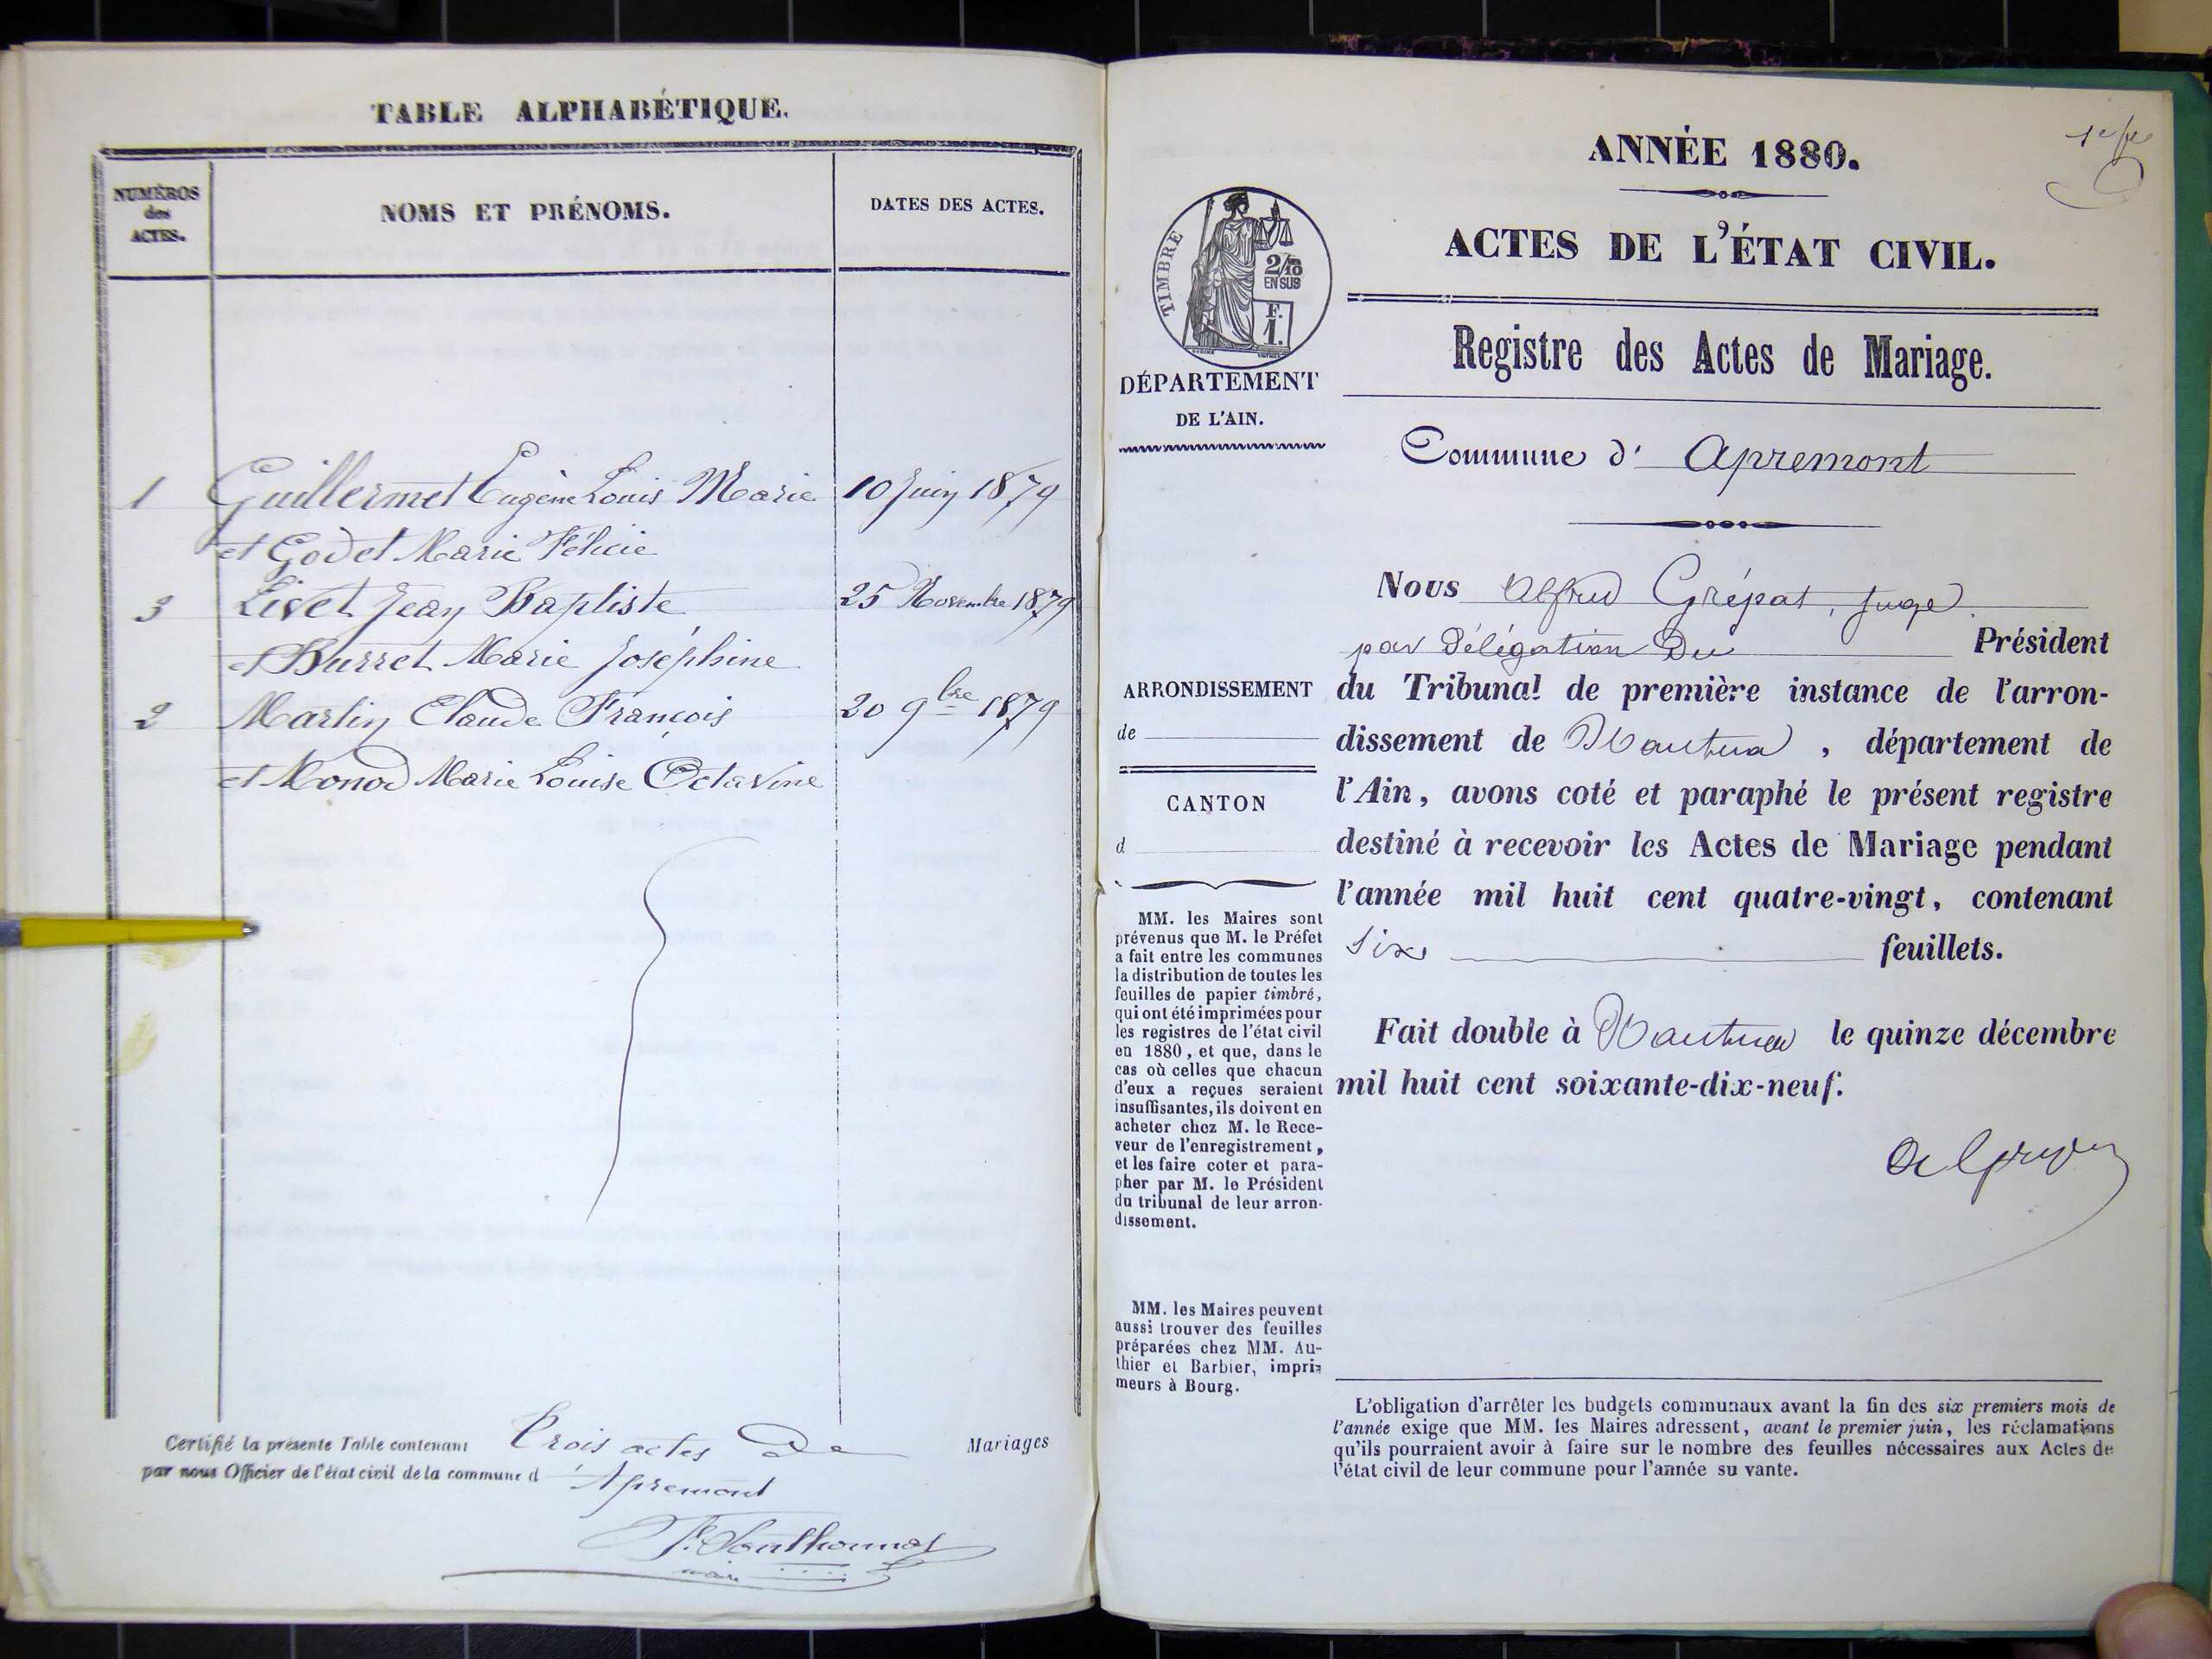 TABLE ALPHABÉTIQUE.
NUMÉROS
des
ACTES.
NOMS ET PRÉNOMS.
DATES DES ACTES.
1 Guillermet Eugène Louis Marie 10 Juin 1879
et Godet Marie Félicie
3 Livet Jean Baptiste 25 Novembre 1879
et Burret Marie Joséphine
2 Martin Claude François 20 9bre 1879
et Monod Marie Louise Octavine
Certifié la présente Table contenant Trois actes de Mariages
par nous Officier de l'état civil de la commune d'Apremont
maire
1er
ANNÉE 1880.
ACTES DE L'ÉTAT CIVIL.
Registre des Actes de Mariage.
TIMBRE
2/10
EN SUS
F.
1.
DÉPARTEMENT
DE L'AIN.
Commune d' Apremont
Nous Alfred Grépat, Juge
par Délégation Du Président
du Tribunal de première instance de l'arron-
dissement de Nantua, département de
l'Ain, avons coté et paraphé le présent registre
destiné à recevoir les Actes de Mariage pendant
l'année mil huit cent quatre-vingt, contenant
Six feuillets.
Fait double à Nantua le quinze décembre
mil huit cent soixante-dix-neuf.
ARRONDISSEMENT
de
CANTON
d
MM. les Maires sont
prévenus que M. le Préfet
a fait entre les communes
la distribution de toutes les
feuilles de papier timbré,
qui ont été imprimées pour
les registres de l'état civil
en 1880, et que, dans le
cas où celles que chacun
d'eux a reçues seraient
insuffisantes, ils doivent en
acheter chez M. le Rece-
veur de l'enregistrement,
et les faire coter et para-
pher par M. le Président
du tribunal de leur arron-
dissement.
MM. les Maires peuvent
aussi trouver des feuilles
préparées chez MM. Au-
thier et Barbier, impri-
meurs à Bourg.
L'obligation d'arrêter les budgets communaux avant la fin des six premiers mois de
l'année exige que MM. les Maires adressent, avant le premier juin, les réclamations
qu'ils pourraient avoir à faire sur le nombre des feuilles nécessaires aux Actes de
l'état civil de leur commune pour l'année su vante.